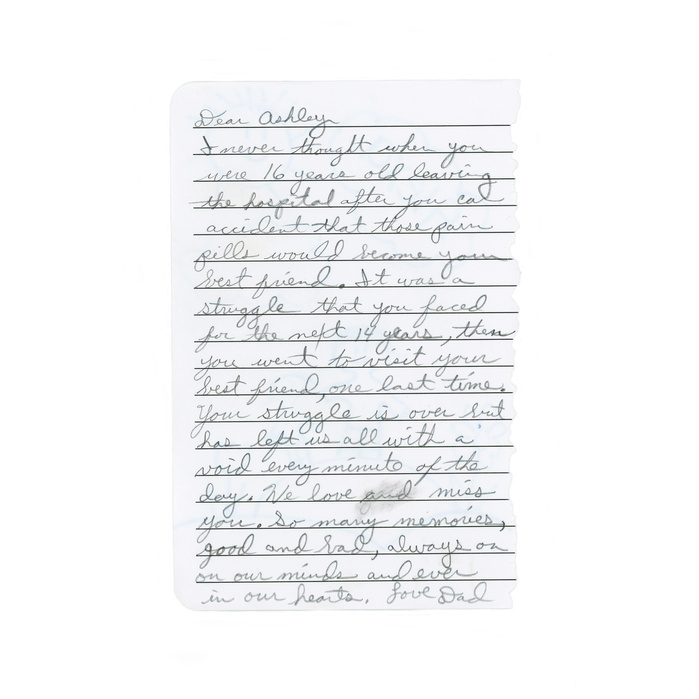 Dear Ashley
I never thought when you
were 16 years old leaving
the hospital after you car
accident that those pain
pills would become your
best friend. It was a
struggle that you faced
for the next 14 years, then
you went to visit your
best friend, one last time.
Your struggle is over but
has left us all with a
void every minute of the
day. We love and miss
you. So many memories,
good and bad, always on
on our minds and ever
in our hearts. Love Dad